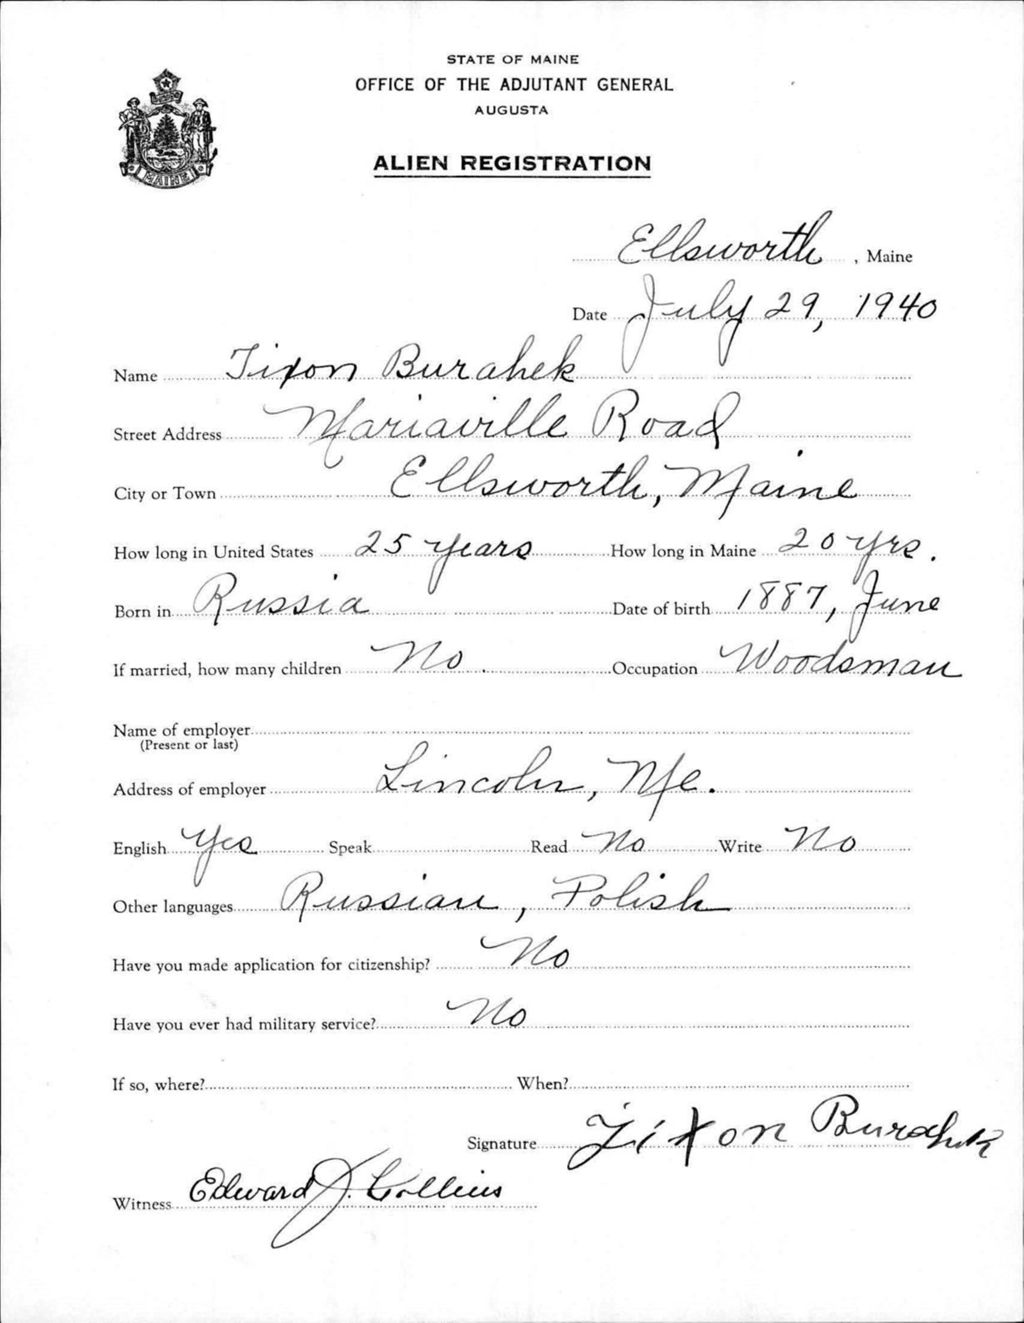 STATE OF MAINE
OFFICE OF THE ADJUTANT GENERAL
AUGUSTA
MAINE
ALIEN REGISTRATION
Ellsworth, Maine
Date July 29, 1940
Name Tixon Burahek
Street Address Mariaville Road
City or Town Ellsworth, Maine
How long in United States 25 years How long in Maine 20 yrs.
Born in Russia Date of birth 1887, June
If married, how many children No. Occupation Woodsman
Name of employer
(Present or last)
Address of employer Lincoln, Me.
English Yes Speak Read No Write No
Other languages Russian, Polish
Have you made application for citizenship? No
Have you ever had military service? No
If so, where? When?
Signature Tixon Burahek
Witness Edward J. Collins